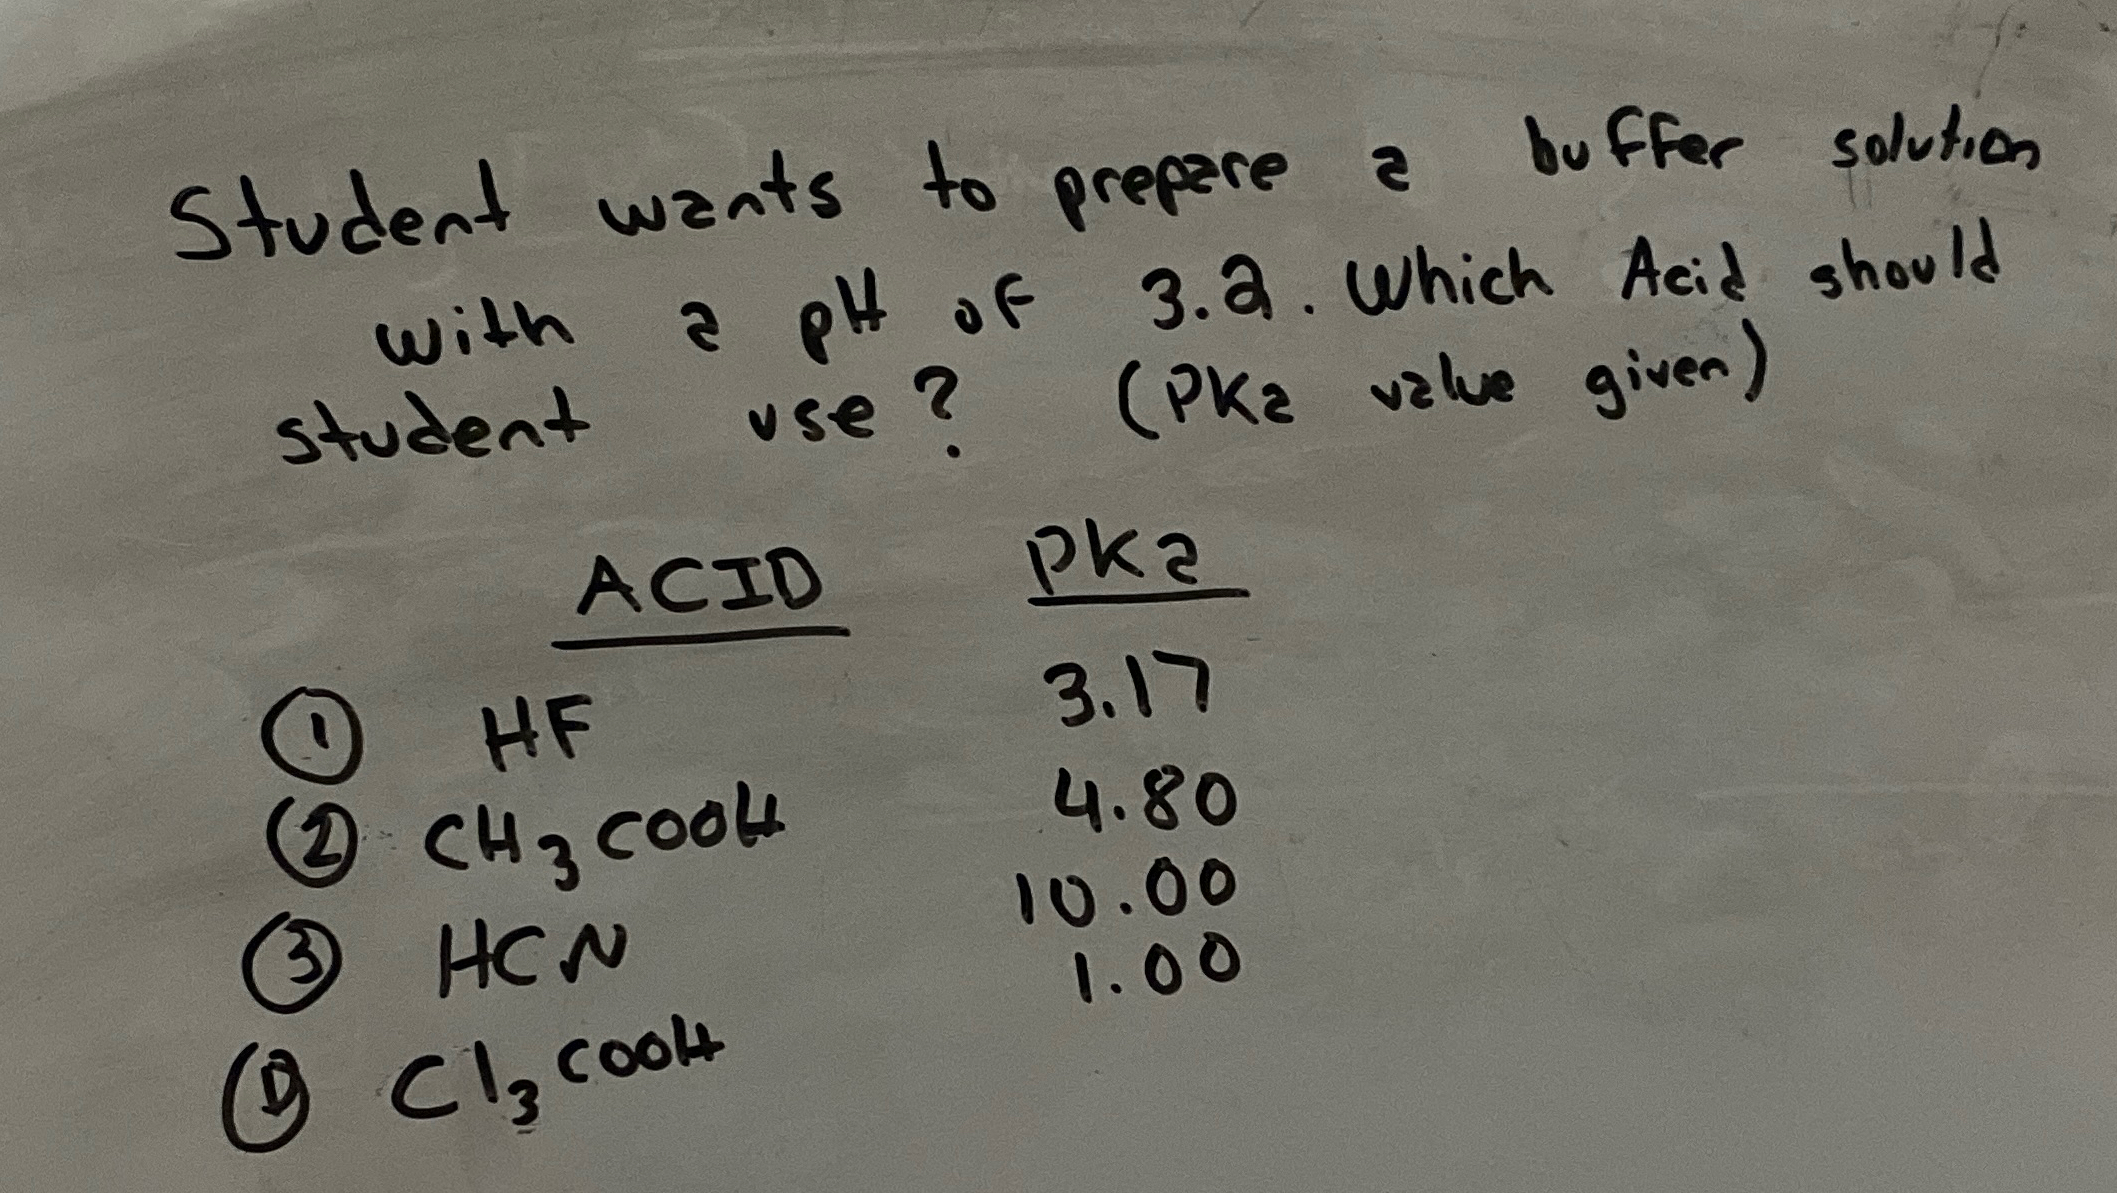 Student wants to prepare a buffer solution
with a pH of 3.2. Which Acid should
student use? (PKa value given)
ACID PKa
① HF 3.17
② CH₃COOH 4.80
③ HCN 10.00
Ⓓ Cl₃COOH 1.00